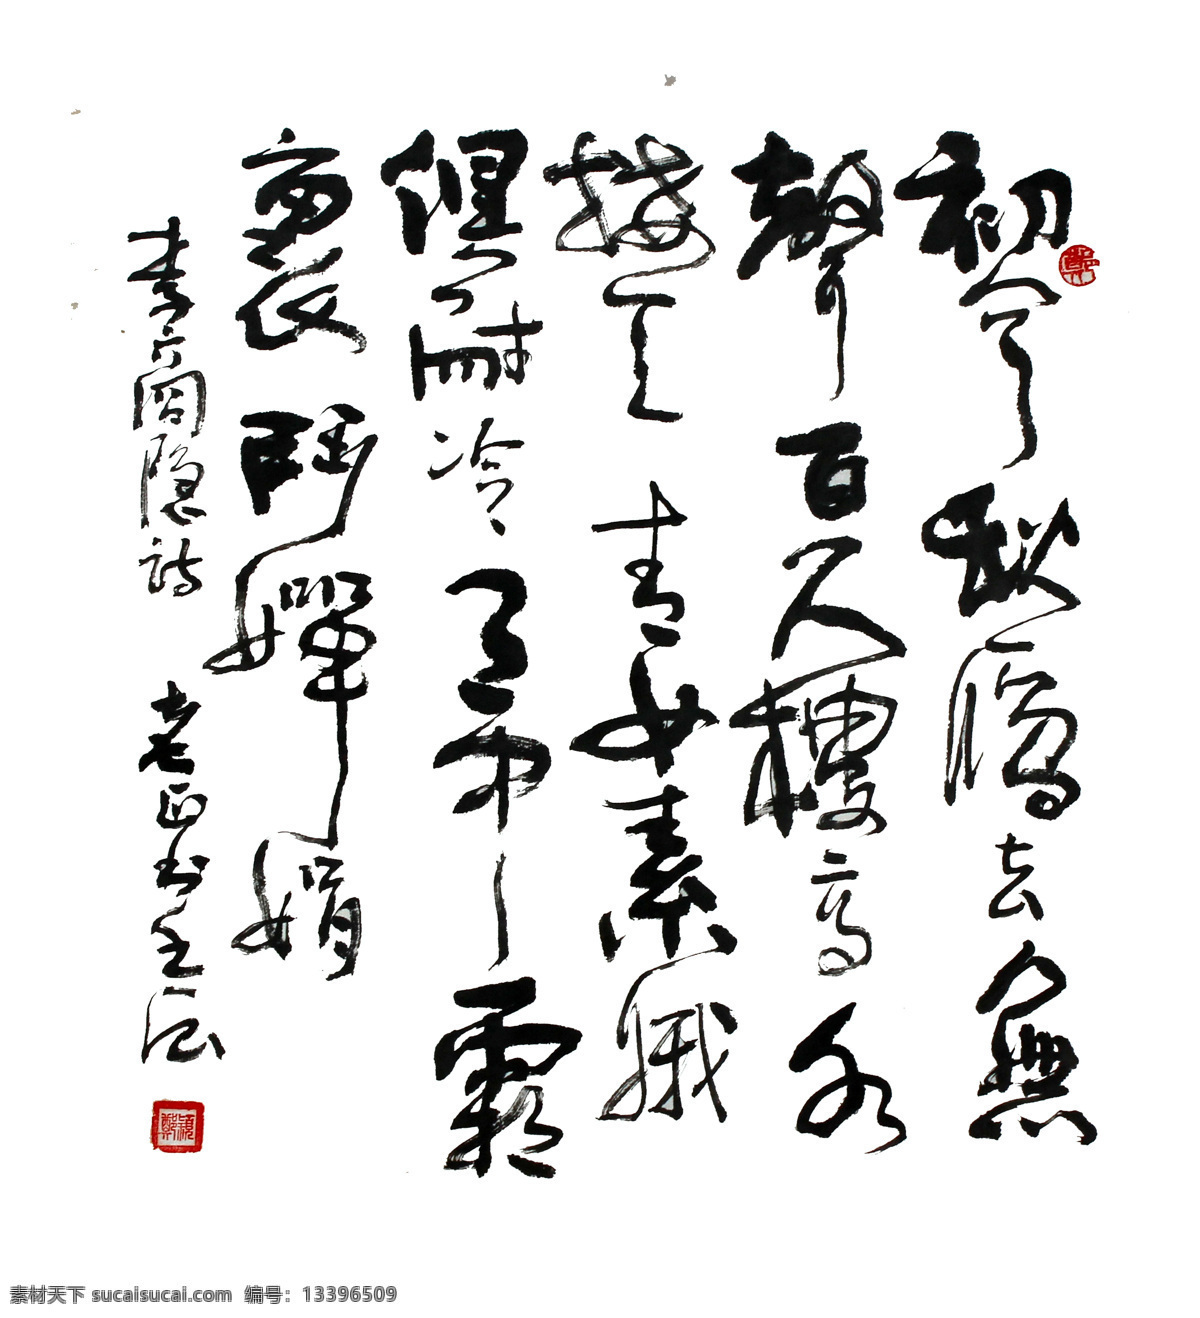 初聞秋鴈去無
聲百尺樓高水
接天青女素娥
俱耐冷月中霜
裏鬥嬋娟
李商隐詩 老正书
素材天下 sucaisucai.com 编号：13396509